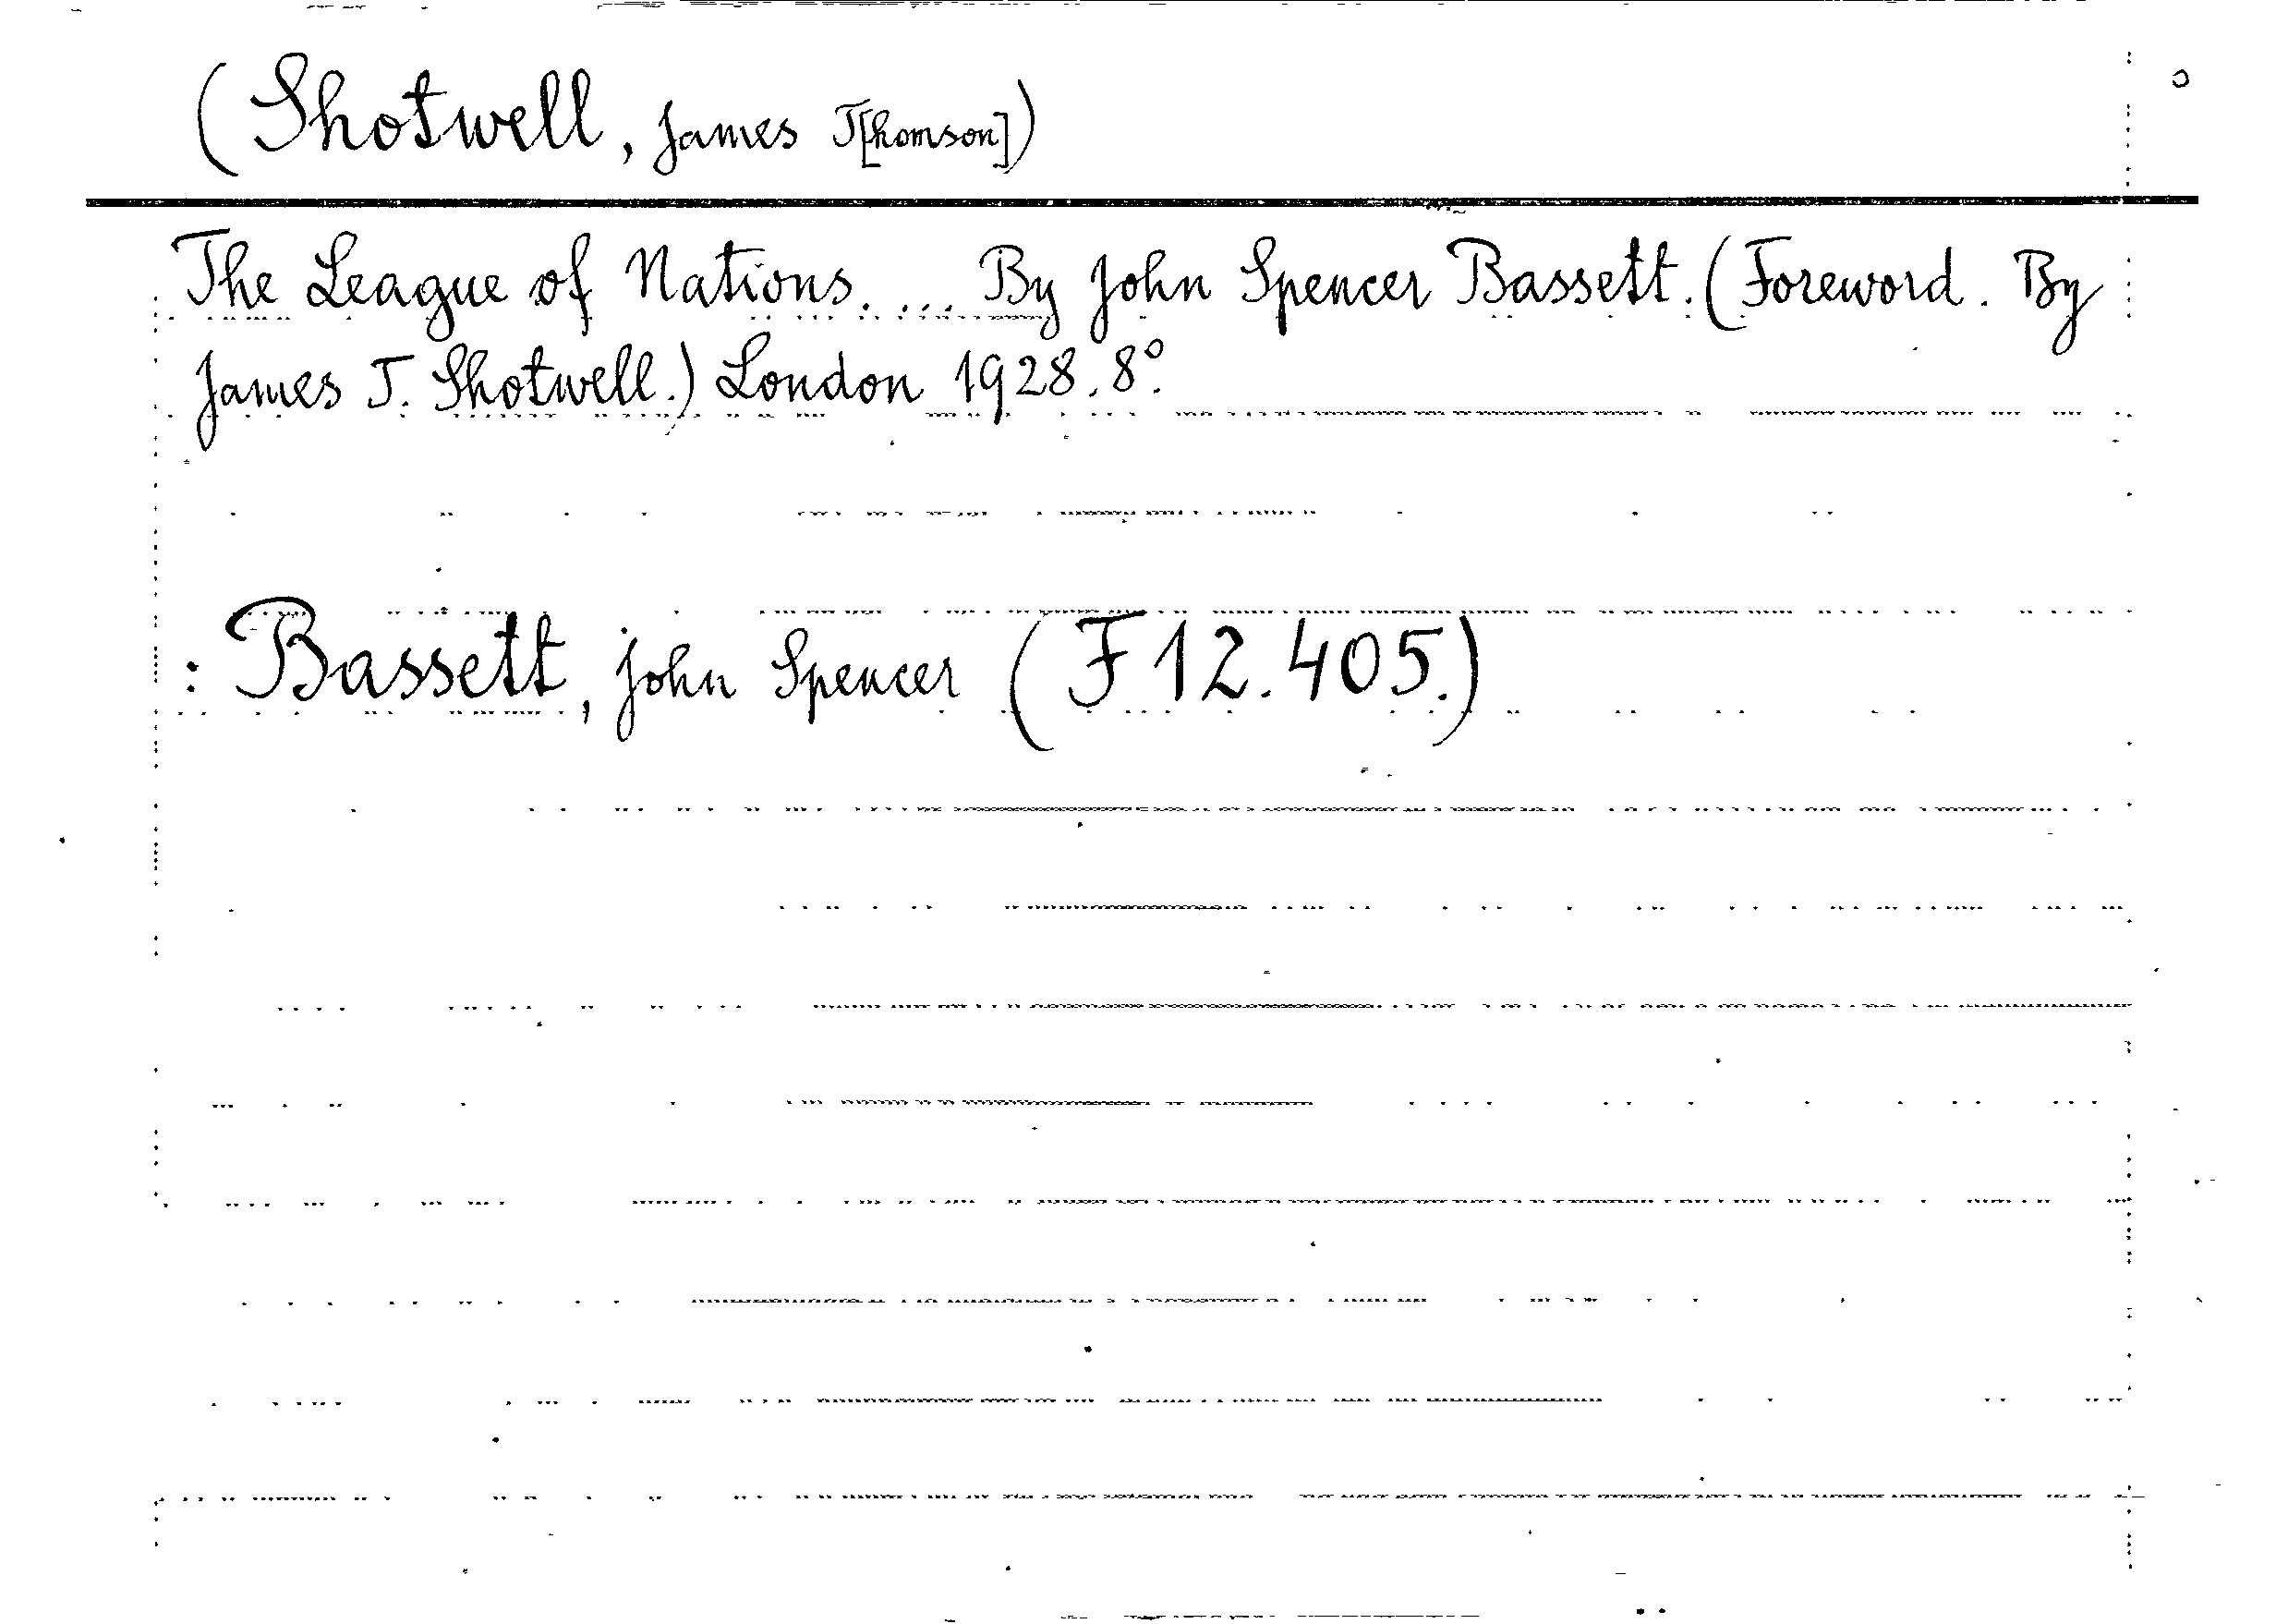 (Shotwell, James T[homson])
The League of Nations. ... By John Spencer Bassett. (Foreword. By
James T. Shotwell.) London 1928. 8°.
: Bassett, John Spencer (F 12.405.)